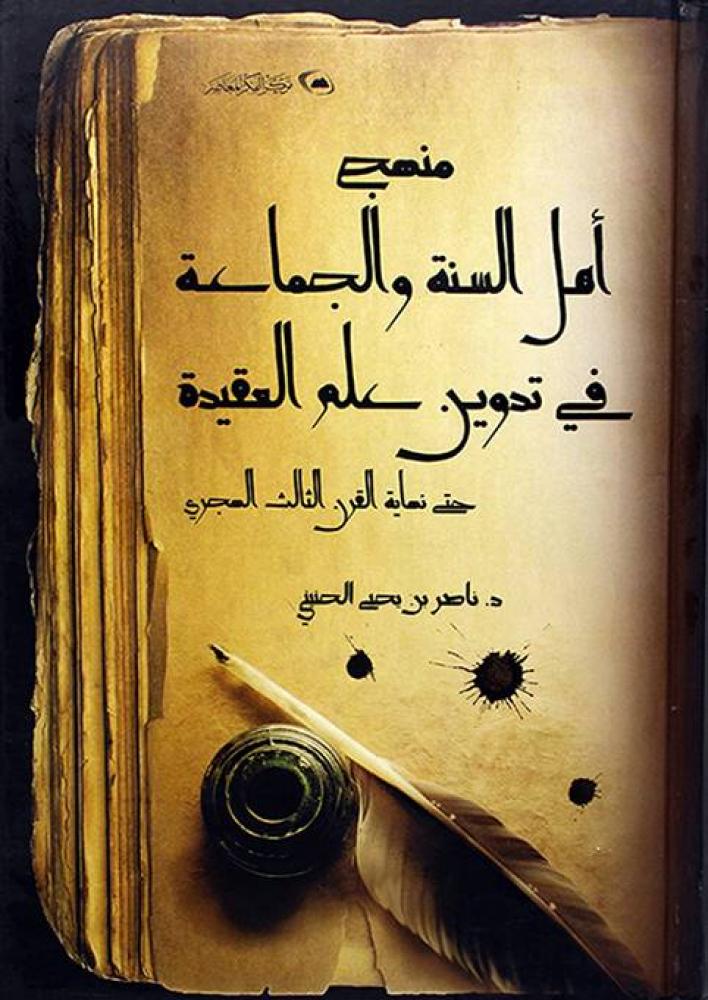 مركز الفكر المعاصر
منهج
أهل السنة والجماعة
في تدوين علم العقيدة
حتى نهاية القرن الثالث الهجري
د. ناصر بن يحيى الحنيني